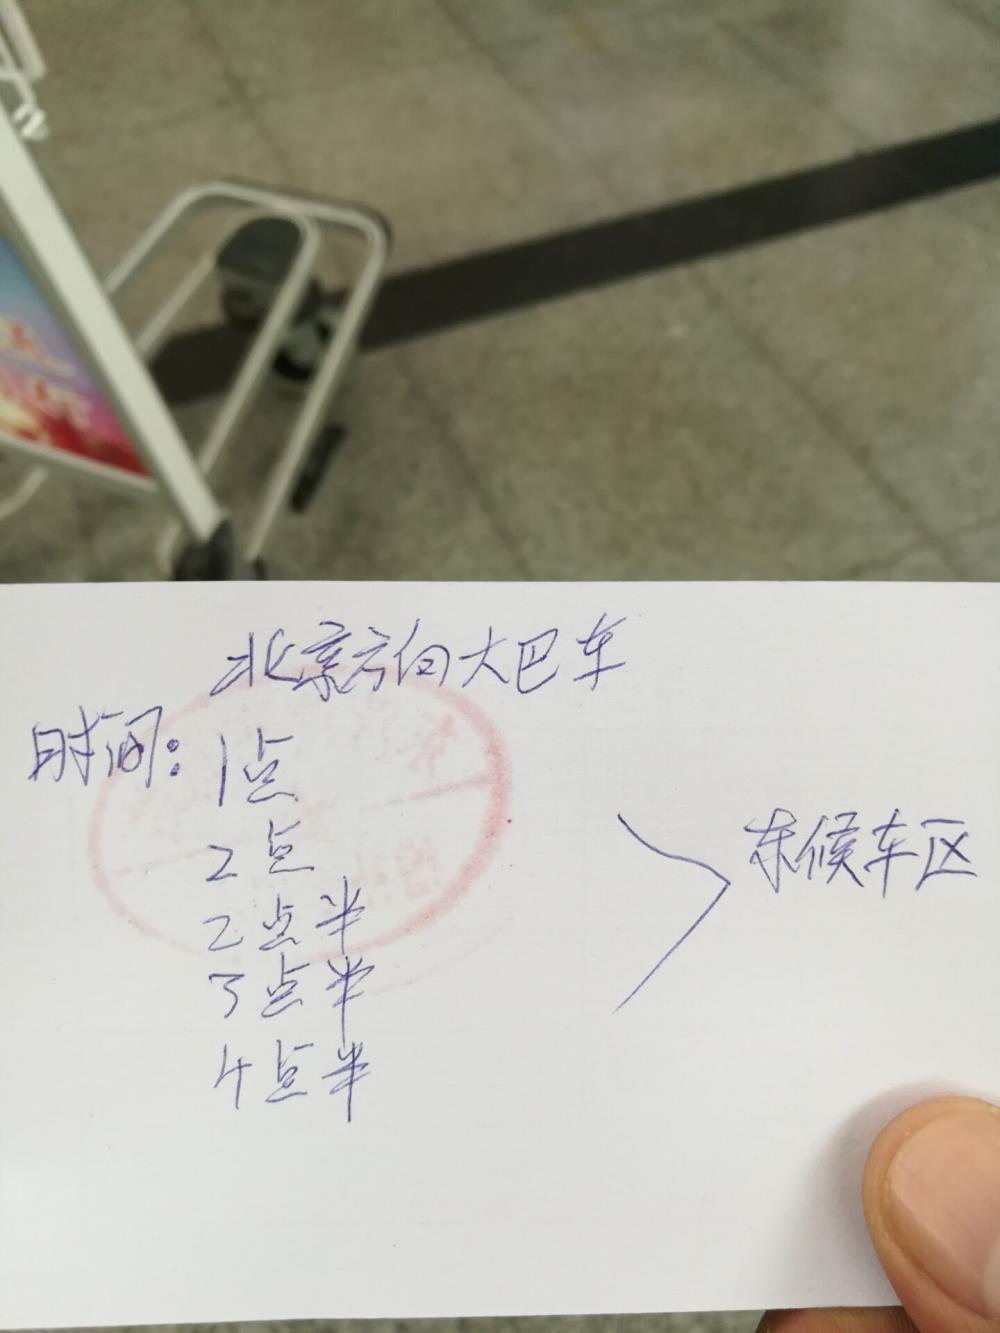 北京方向大巴车
时间：1点
2点
2点半
3点半
4点半
东候车区